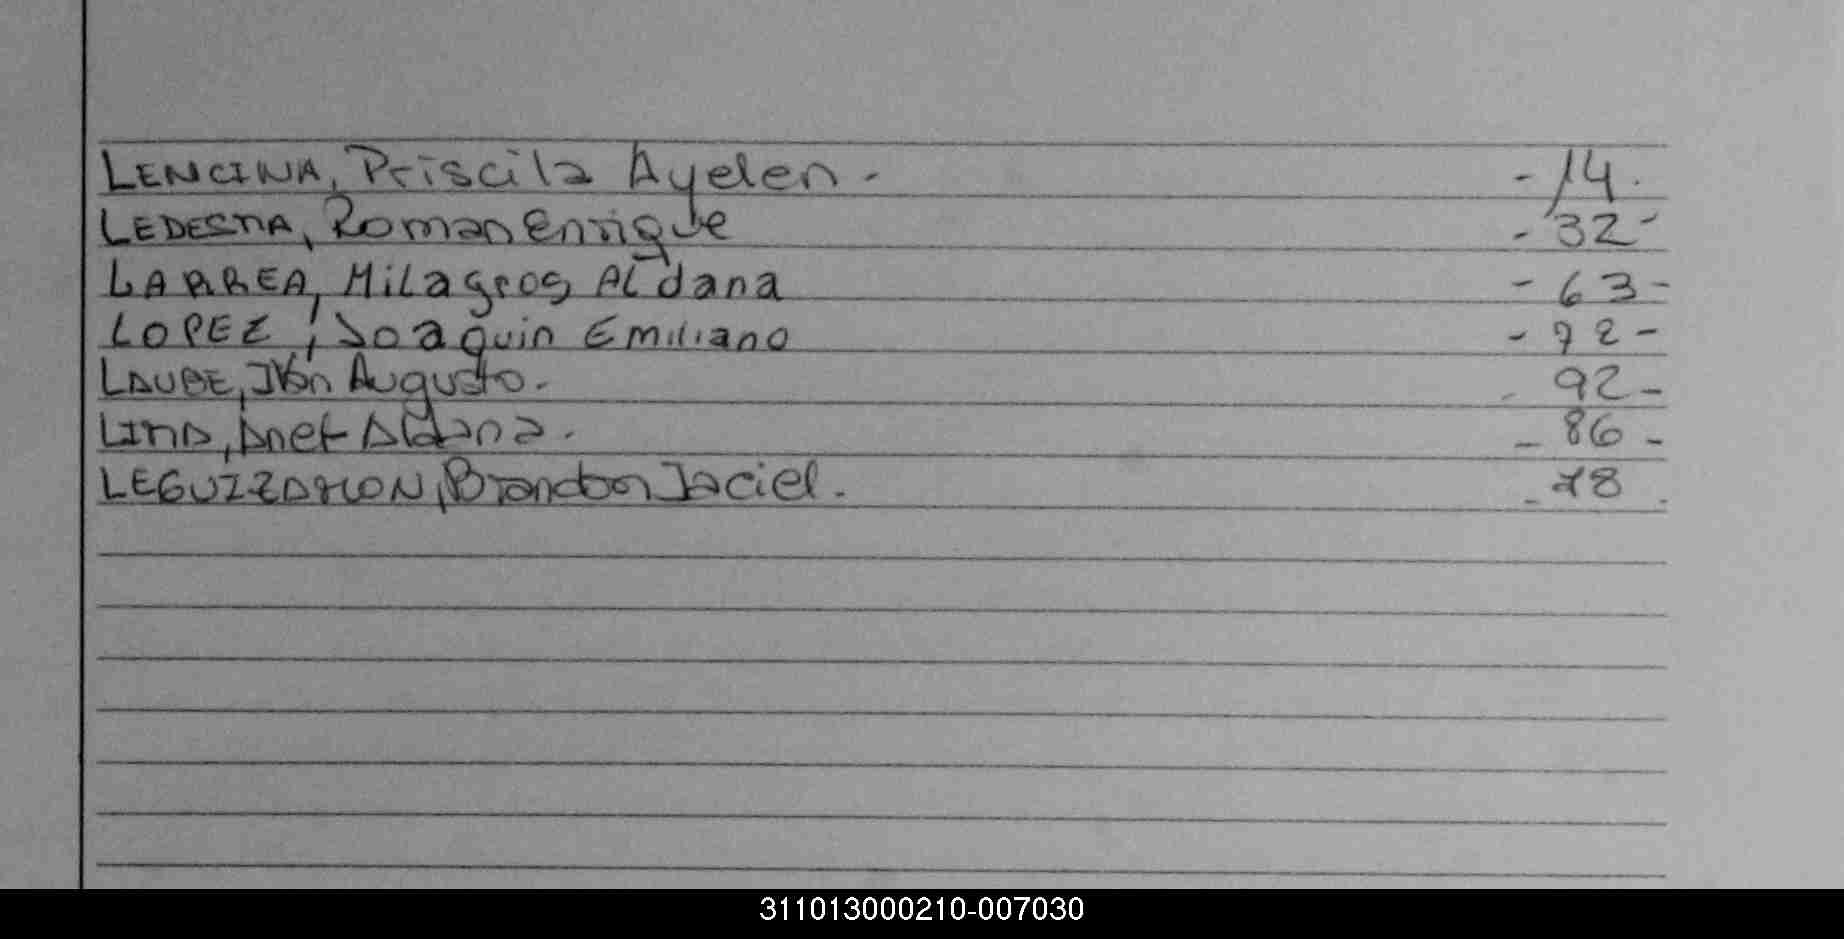 LENCINA, Priscila Ayelen. - 14.
LEDESMA, Roman Enrique - 32 -
LARREA, Milagros Aldana - 63 -
LOPEZ, Joaquin Emiliano - 72 -
LAUBE, Iván Augusto. - 92 -
LIMA, Anet Aldana. - 86 -
LEGUIZAMON, Brandon Jaciel. - 78 -
311013000210-007030